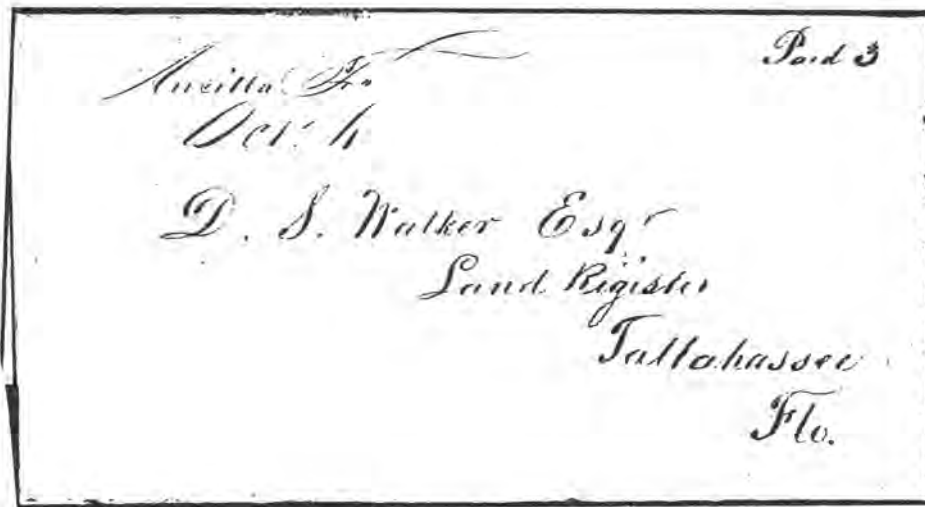 Aucilla Fa
Paid 3
Oct. 4
D. S. Walker Esqr
Land Register
Tallahassee
Flo.